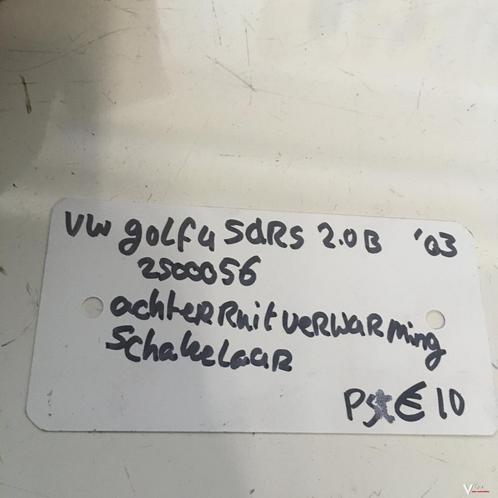 VW golf 4 5dRS 2.0B '03
2500056
achterruitverwarming
Schakelaar
Pst € 10